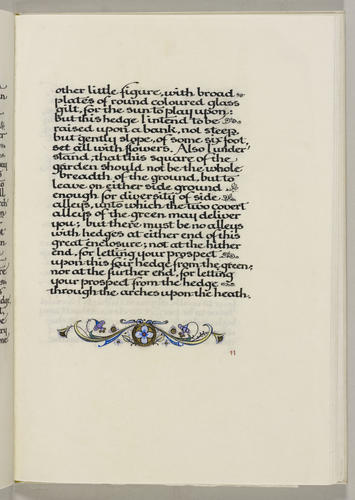 other little figure, with broad
plates of round coloured glass
gilt, for the sun to play upon:
but this hedge I intend to be
raised upon a bank, not steep,
but gently slope, of some six foot,
set all with flowers. Also I under-
stand, that this square of the
garden should not be the whole
breadth of the ground, but to
leave on either side ground
enough for diversity of side
alleys, unto which the two covert
alleys of the green may deliver
you; but there must be no alleys
with hedges at either end of this
great enclosure; not at the hither
end, for letting your prospect
upon this fair hedge from the green;
nor at the further end, for letting
your prospect from the hedge
through the arches upon the heath.
11